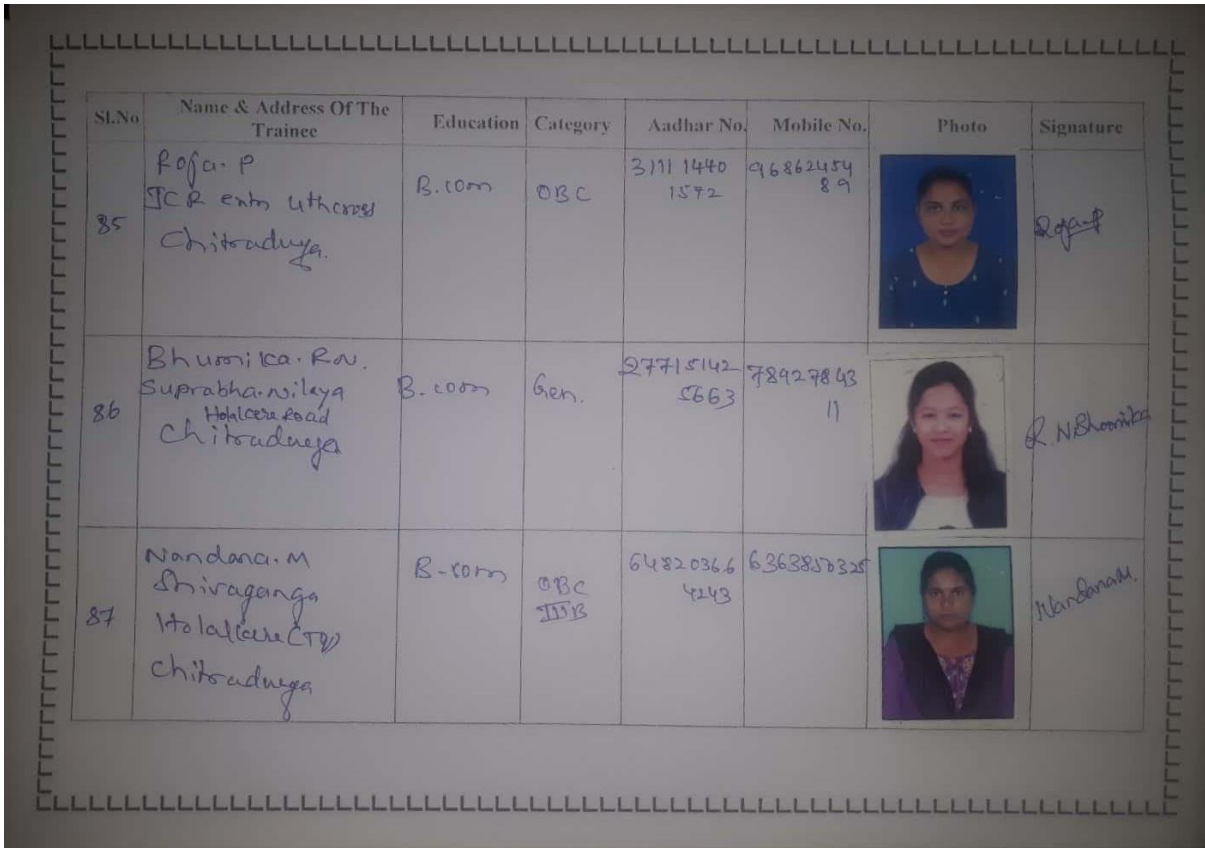 Sl.No Name & Address Of The Trainee Education Category Aadhar No. Mobile No. Photo Signature
85
Roja. P
JCR extn 4th cross
Chitradurga.
B.com
OBC
3111 1440
1572
96862454
89
Roja.P
86
Bhumika. R.N.
Suprabha. nilaya
Holalkere Road
Chitradurga
B.com
Gen.
27715142
5663
78927843
11
R.N Bhoomika
87
Nandana. M
Shivaganga
Holalkere (TQ)
Chitradurga
B-com
OBC
IIIB
64820366
4243
6363850325
Nandana M.